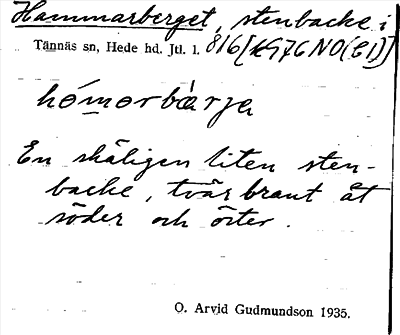 Hammarberget, stenbacke i
Tännäs sn, Hede hd. Jtl. l. 816[K976NO(C1)]
hámorbàrja
En skäligen liten sten-
backe, tvärbrant åt
söder och öster.
O. Arvid Gudmundson 1935.